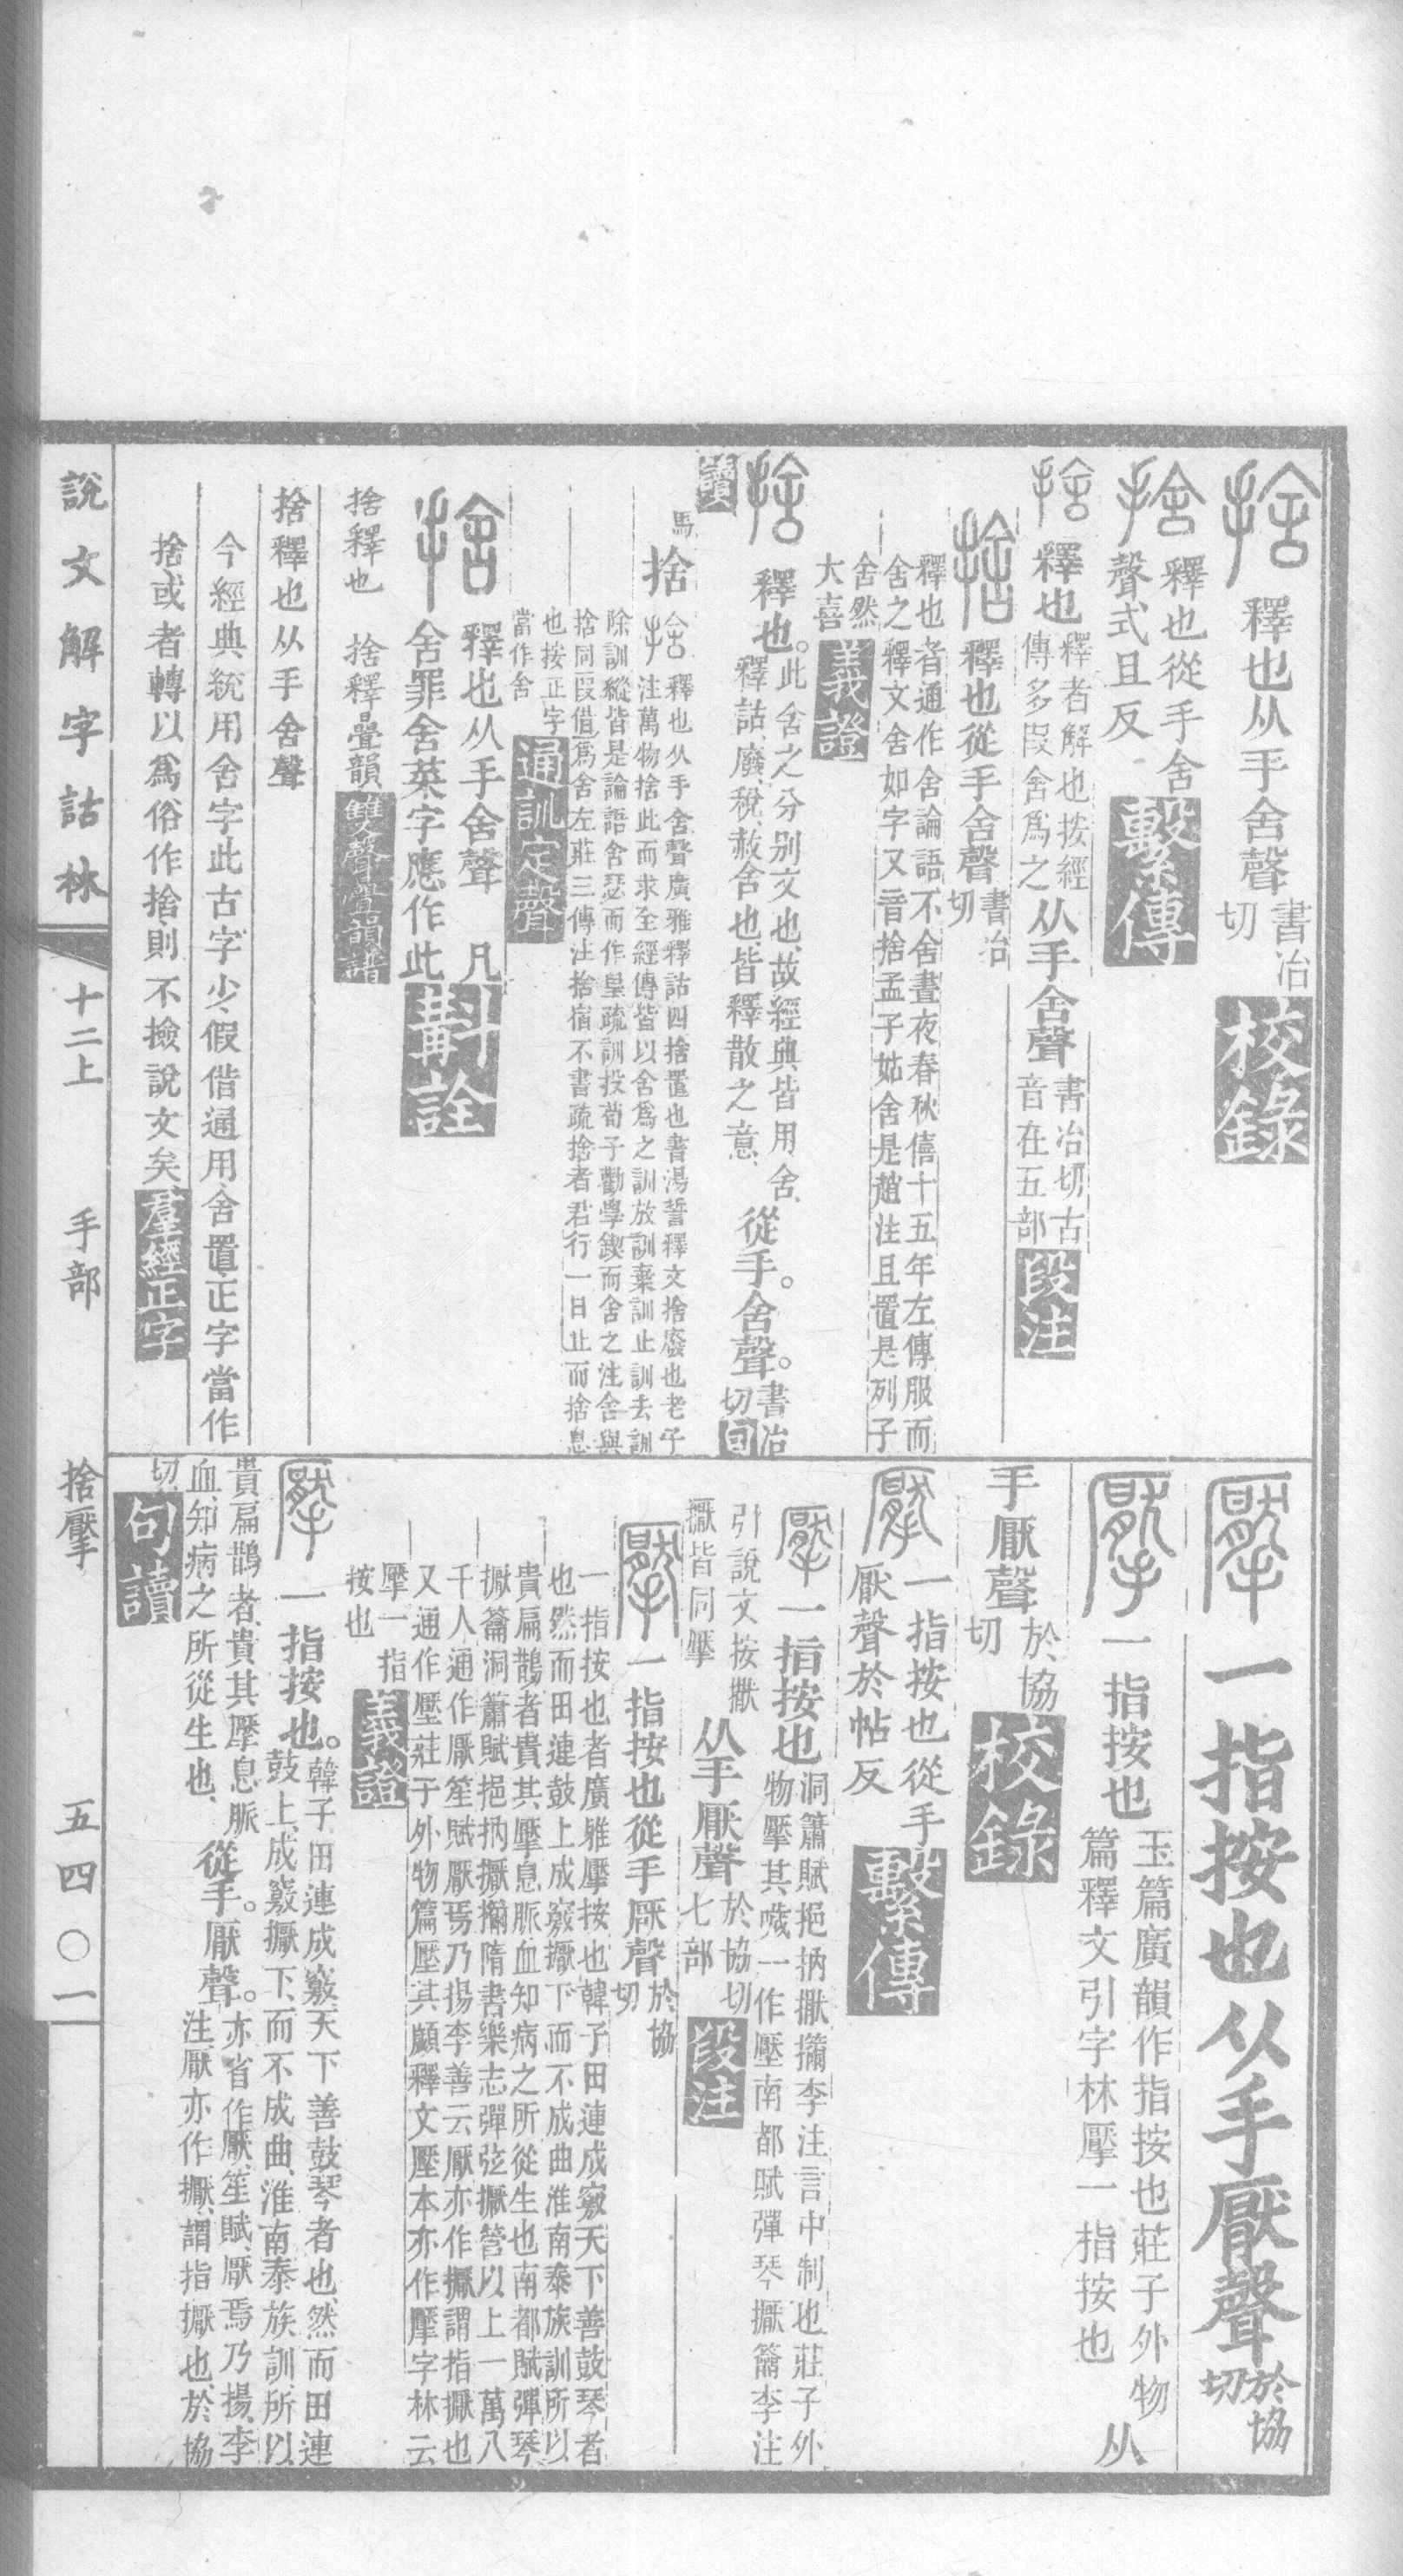 捨 釋也从手舍聲 書冶切 校錄
捨 釋也從手舍聲式且反 繫傳
捨 釋也 釋者解也按經傳多叚舍爲之 从手舍聲 書冶切古音在五部 段注
捨 釋也從手舍聲 書冶切
釋也者通作舍論語不舍晝夜春秋僖十五年左傳服而
舍之釋文舍如字又音捨孟子姑舍是趙注且置是列子
舍然大喜 義證
捨 釋也。此舍之分別文也、故經典皆用舍、釋詁、廢、稅、赦、舍也、皆釋散之意、 從手。舍聲。書冶切 句讀
捨 捨釋也从手舍聲廣雅釋詁四捨置也書湯誓釋文捨廢也老子
注萬物捨此而求全經傳皆以舍爲之訓放訓棄訓止訓去訓
除訓縱皆是論語舍瑟而作皇疏訓投荀子勸學鍥而舍之注舍與
捨同叚借爲舍左莊三傳注捨宿不書疏捨者君行一日止而捨息
也按正字當作舍 通訓定聲
捨 釋也从手舍聲 凡舍罪舍菜字應作此 斠詮
捨釋也 捨釋疊韻 雙聲疊韻譜
捨釋也从手舍聲
今經典統用舍字此古字少、假借通用、舍置正字當作
捨、或者轉以爲俗作捨、則不撿說文矣、 羣經正字
擪 一指按也从手厭聲 於協切
擪 一指按也 玉篇廣韻作指按也莊子外物篇釋文引字林擪一指按也 从
手厭聲 於協切 校錄
擪 一指按也從手厭聲於帖反 繫傳
擪 一指按也 洞簫賦挹抐擫㩶李注言中制也莊子外物擪其顪一作壓南都賦彈琴擫籥李注
引說文按擫擫皆同擪 从手厭聲 於協切七部 段注
擪 一指按也從手厭聲 於協切
一指按也者廣雅擪按也韓子田連成竅天下善鼓琴者
也然而田連鼓上成竅擫下而不成曲淮南泰族訓所以
貴扁鵲者貴其擪息脈血知病之所從生也南都賦彈琴
擫籥洞簫賦挹抐擫㩶隋書樂志彈弦擫管以上一萬八
千人通作厭笙賦厭焉乃揚李善云厭亦作擫謂指擫也
又通作壓莊子外物篇壓其顪釋文壓本亦作擪字林云
擪一指按也 義證
擪 一指按也。韓子、田連成竅、天下善鼓琴者也、然而田連
鼓上、成竅擫下、而不成曲、淮南泰族訓、所以
貴扁鵲者、貴其擪息脈
血、知病之所從生也、 從手。厭聲。亦省作厭、笙賦、厭焉乃揚、李
注、厭亦作擫、謂指擫也、於協
切 句讀
說文解字詁林 十二上 手部 捨擪 五四〇一